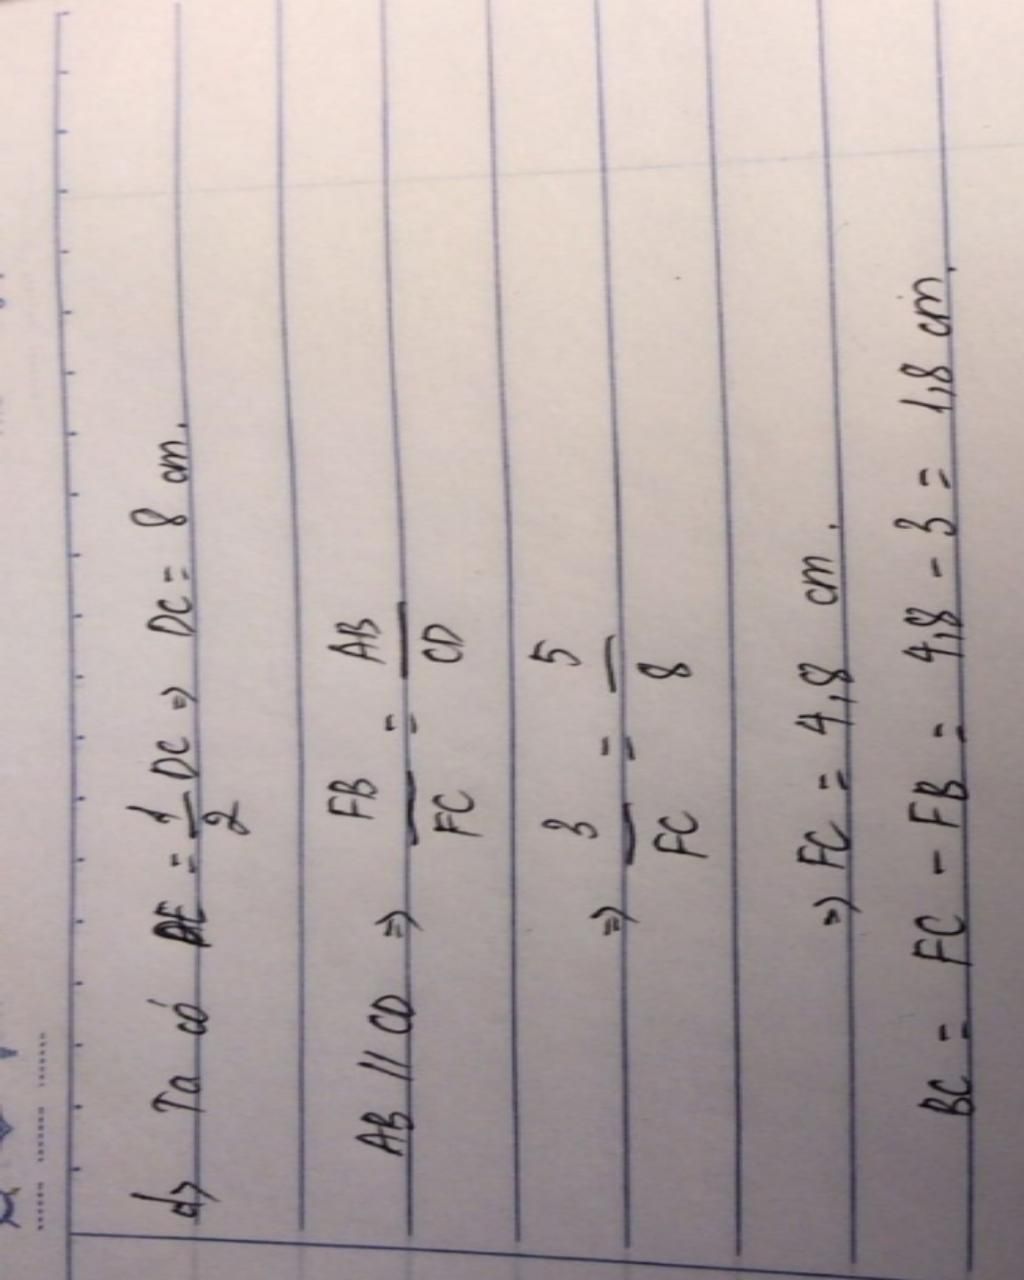 d) Ta có AE = 1/2 DC => DC = 8 cm.
AB // CD => FB/FC = AB/CD
=> 3/FC = 5/8
=> FC = 4,8 cm.
BC = FC - FB = 4,8 - 3 = 1,8 cm.